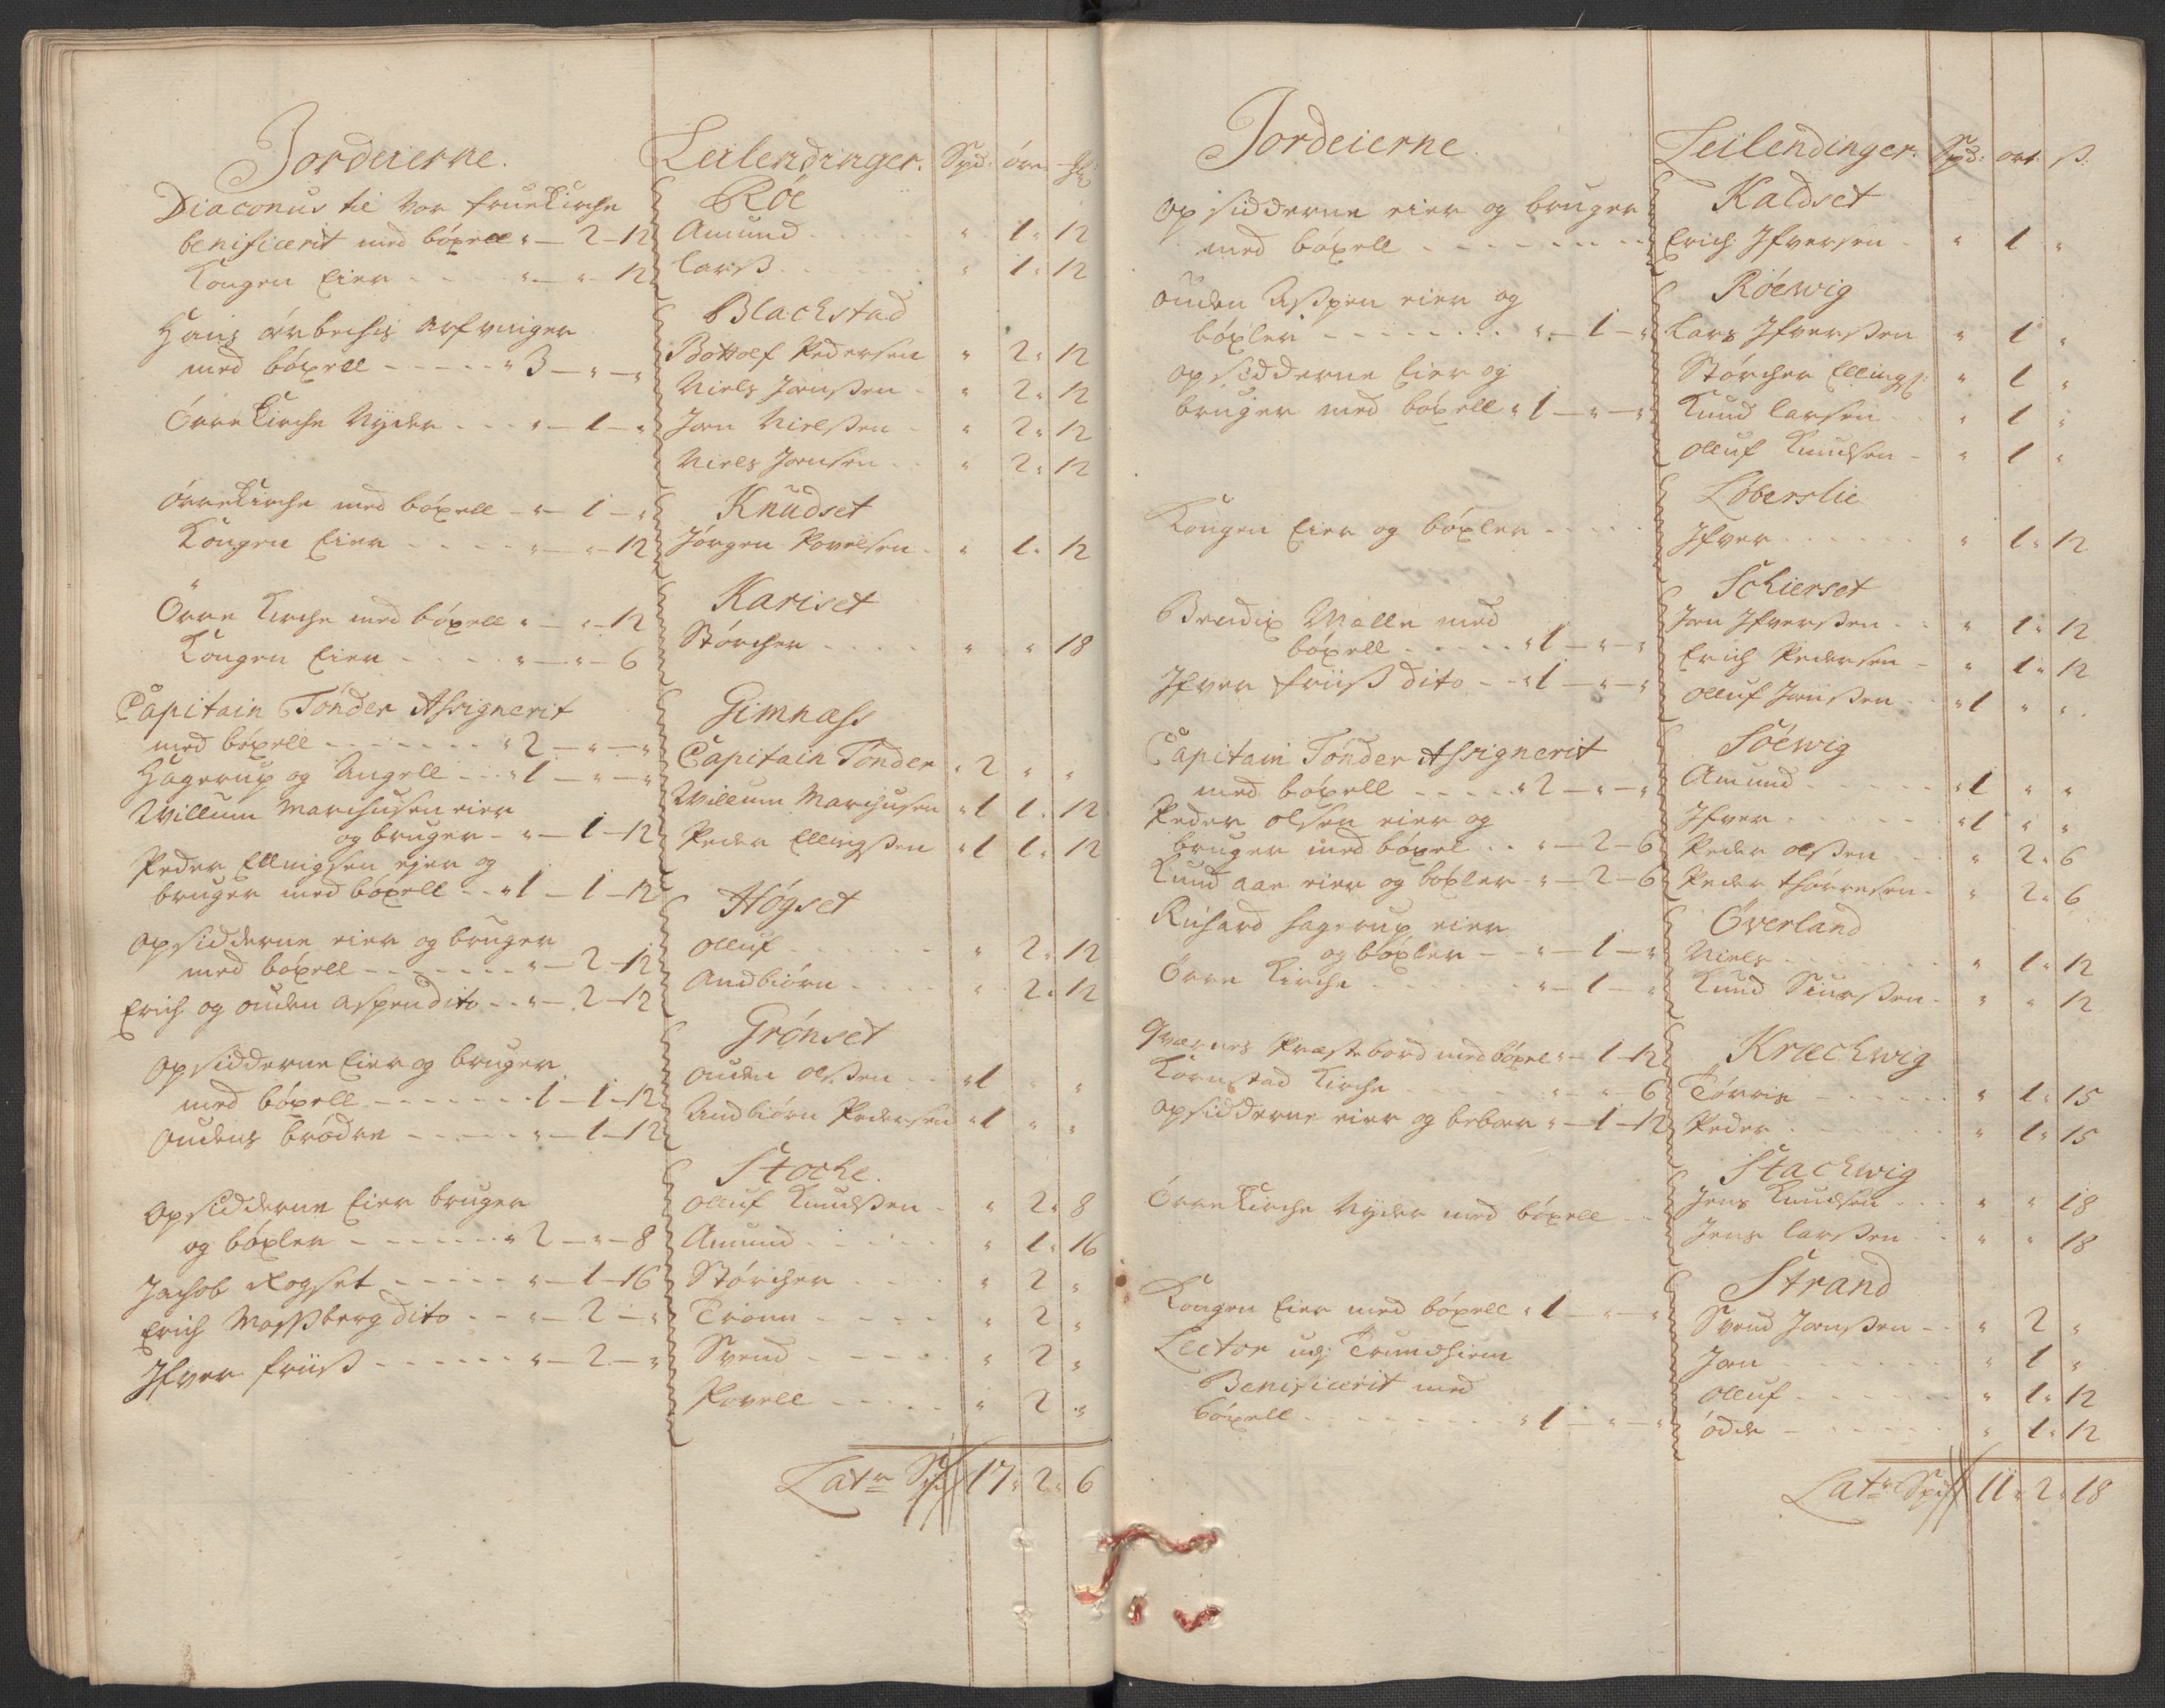 Jordeierne.
Diaconus til Vor fruekirche
benificerit med böxell " — 2 – 12
Kongen Eier - - - - " — " – 12
Hans arfvinger
med böxell - - - - - " 3 — " — "
Örre Kirche Nyder - - - " — 1 — "
Örrekirche med böxell - " — 1 — "
Kongen Eier - - - - " — " – 12
Örre Kirche med böxell " — " – 12
Kongen Eier - - - - " — " – 6
Capitain Tönder Assignerit
med böxell - - - - - - " 2 — " — "
Hagerup og Angell - - - " 1 — " — "
Willum Marchusen eier
og bruger - " — 1 – 12
Peder Ellingsen ejer og
bruger med böxell - - " 1 – 1 – 12
Opsidderne eier og bruger
med böxell - - - - - - " — 2 – 12
Erich og Ouden Aspen dito - - " — 2 – 12
Opsidderne Eier og bruger
med böxell - - - - - - 1 – 1 – 12
Oudens brödre - - - - - " — 1 – 12
Opsidderne Eier bruger
og böxler - - - - - - " 2 — " – 8
Jachob Rogset - - - - - " — 1 – 16
Erich Mossberg dito - - " — 2 — "
Ifver friiss - - - - - - " — 2 — "
Leilendinger. Spd: öre
Röe
Amund - - - - - " 1 " 12
Larss - - - - - " 1 " 12
Blachstad
Bottolf Pedersen " 2 " 12
Niels Jonssen - " 2 " 12
Jon Nielssen - " 2 " 12
Niels Jonsen - - " 2 " 12
Knudset
Jörgen Povelsen - " 1 " 12
Kariset
Störcher - - - - - " " 18
Gimnæss
Capitain Tönder " 2 " "
Willum Marchusen " 1 1 " 12
Peder Ellingssen " 1 1 " 12
Högset
Olluf - - - - - - " 2 " 12
Andbiörn - - - - " 2 " 12
Grönset
Ouden Olssen - - " 1 " "
Andbiörn Pedersen " 1 " "
Stocke.
Olluf Knudssen - " 2 " 8
Amund - - - - - " 1 " 16
Störcher - - - - " 2 "
Tronn - - - - - " 2 "
Svend - - - - - " 2 "
Povell - - - - - " 2 "
Latr Spd 17 " 2 " 6
Jordeierne.
Opsidderne eier og bruger
med böxell - - - - - - - -
Ouden Asspen eier og
böxler - - - - - - - - " — 1 — "
Opsidderne Eier og
bruger med böxell " 1 — " — "
Kongen Eier og böxler - - - - -
Bendix Mølle med
böxell - - - - - " 1 — " — "
Ifver friiss dito - - " 1 — " — "
Capitain Tönder Assignerit
med böxell - - - - " 2 — " — "
Peder Olsen eier og
bruger med böxel - - " — 2 – 6
Knud Aae eier og böxler - " — 2 – 6
Richard Hagerup eier
og böxler - - " — 1 — "
Örre Kirche - - - - - - " — 1 — "
Qvernes Præstebord med böxel " — 1 – 12
Kornstad Kirche - - - - - " — " 6
Opsidderne eier og beboer " — 1 – 12
Örre Kirche Nyder med böxell - -
Kongen Eier med böxell " 1 — " — "
Lector udj Trundhiem
Benificerit med
böxell - - - - - - - " 1 — " — "
Leilendinger. Spd: ort: ß:
Kaldset
Erich Ifversen - " 1 "
Röewig
Lars Ifverssen " 1 "
Störcher Ellings: " 1 "
Knud Larsen - - " 1 "
Olluf Knudsen - " 1 "
Löberslie
Ifver - - - - - - " 1 " 12
Schierset
Jon Ifverssen - - " 1 " 12
Erich Pedersen - " 1 " 12
Olluf Jonssen - - " 1 " "
Söewig
Amund - - - - - " 1 " "
Ifver - - - - - - " 1 " "
Peder Olssen - - " 2 " 6
Peder Thörresen - " 2 " 6
Överland
Niels - - - - - - " 1 " 12
Knud Siurssen - " " 12
Kræchwig
Törris - - - - - " 1 " 15
Peder - - - - - - " 1 " 15
Stachwig
Jens Knudsen - - " " 18
Jens Larssen - - " " 18
Strand
Svend Jonssen - - " 2 "
Jon - - - - - - " 1 "
Olluf - - - - - - " 1 " 12
Odde - - - - - - " 1 " 12
Latr Spd 11 " 2 " 18